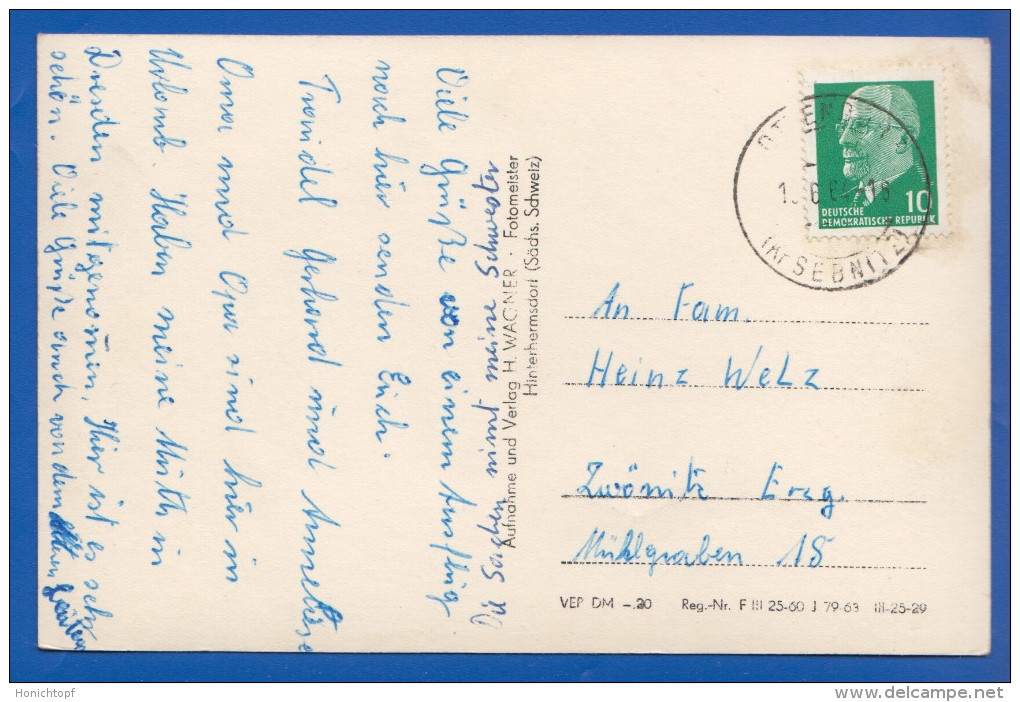 Viele Grüße von einem Ausflug
nach hier senden Euch
Traudel Gerhard und Anneliese
Oma und Opa sind hier in
Urlaub. Haben meine Mutti in
Dresden mitgenommen, Hier ist es sehr
schön. Viele Grüße auch von dem
mit meine
Aufnahme und Verlag H. WAGNER · Fotomeister
Hinterhermsdorf (Sächs. Schweiz)
(Kr SEBNITZ)
10
DEUTSCHE
DEMOKRATISCHE REPUBLIK
An Fam.
Heinz Welz
Zwönitz Erzg.
Mühlgraben 15
VEP DM -.20 Reg.-Nr. F III 25-60 J 79-63 III-25-29
Honichtopf
www.delcampe.net